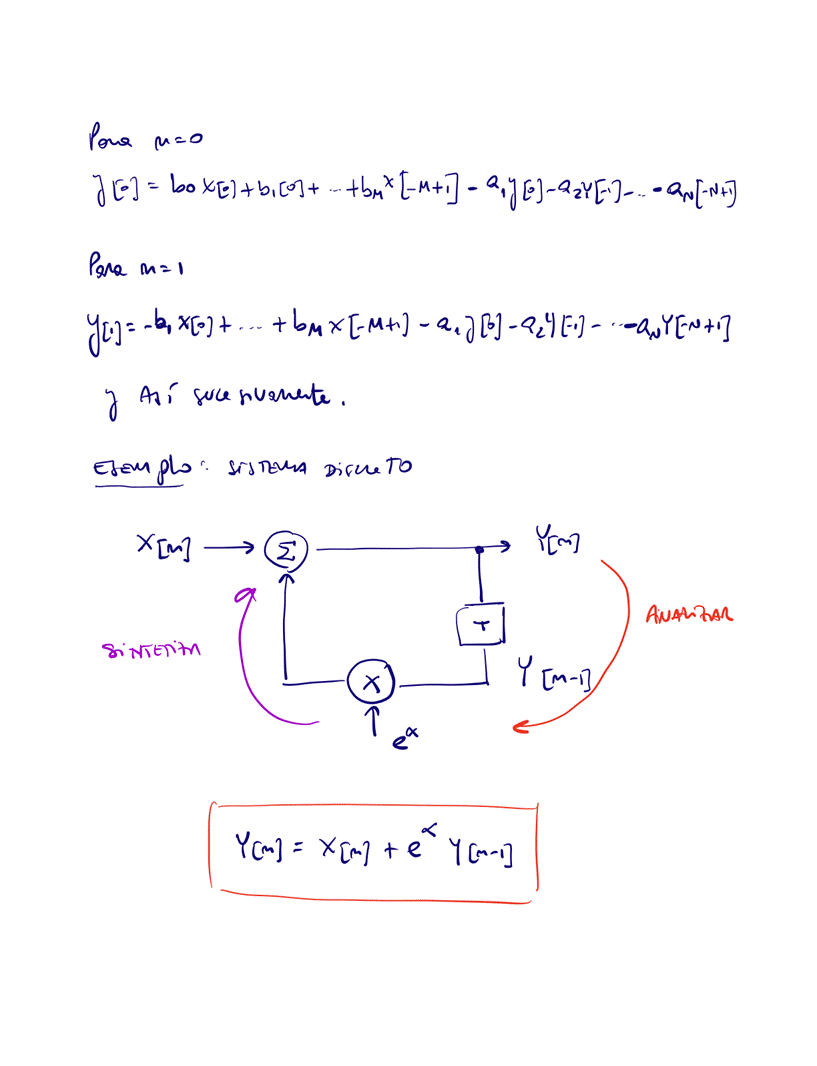 Para n=0
y[0] = b0 x[0] + b1[0] + ... + bM x[-M+1] - a1 y[0] - a2 Y[-1] - ... - aN[-N+1]
Para n=1
y[1] = -b1 x[0] + ... + bM x[-M+1] - a1 y[0] - a2 Y[-1] - ... - aN Y[-N+1]
y Así sucesivamente.
EJEMPLO: SISTEMA DISCRETO
X[n] → Σ → Y[n]
ANALIZAR
T
SINTETIZA
X
Y[n-1]
e^α
Y[n] = X[n] + e^α Y[n-1]